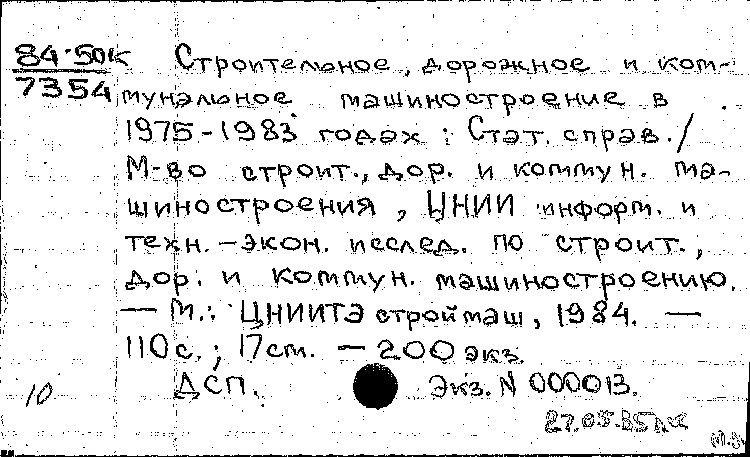 84-50к Строительное, дорожное и ком-
7354 мунальное машиностроение в
1975-1983 годах : Стат. справ. /
М-во строит., дор. и коммун. ма-
шиностроения, ЦНИИ информ. и
техн.-экон. исслед. по строит.,
дор. и коммун. машиностроению.
— М.: ЦНИИТЭстроймаш, 1984. —
110с.; 17см. — 200 экз.
10 ДСП. Экз. N 000013.
27.05.85